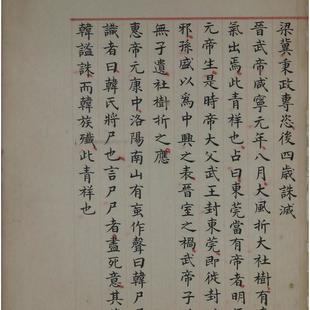 梁冀秉政專恣後四歲誅滅
晉武帝咸寧元年八月大風折大社樹有青
氣出焉此青祥也占曰東莞當有帝者明
元帝生是時帝大父武王封東莞即徙封
邪孫盛以為中興之表晉室之禍武帝子
無子遺社樹折之應
惠帝元康中洛陽南山有䖟作聲曰韓尸
識者曰韓氏將尸也言尸尸者盡死意其
韓謐誅而韓族殲此青祥也